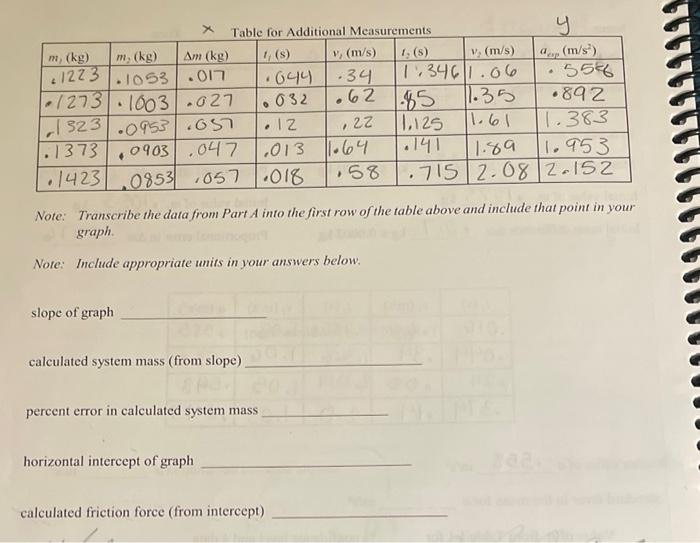 x Table for Additional Measurements y
m₁ (kg) m₂ (kg) Δm (kg) t₁ (s) v₁ (m/s) t₂ (s) v₂ (m/s) a_exp (m/s²)
.1223 .1053 .017 .044 .34 1.346 1.06 .556
.1273 .1003 .027 .032 .62 .85 1.35 .892
.1323 .0953 .037 .12 .22 1.125 1.61 1.383
.1373 .0903 .047 .013 1.64 .141 1.89 1.953
.1423 .0853 .057 .018 .58 .715 2.08 2.152
Note: Transcribe the data from Part A into the first row of the table above and include that point in your
graph.
Note: Include appropriate units in your answers below.
slope of graph
calculated system mass (from slope)
percent error in calculated system mass
horizontal intercept of graph
calculated friction force (from intercept)